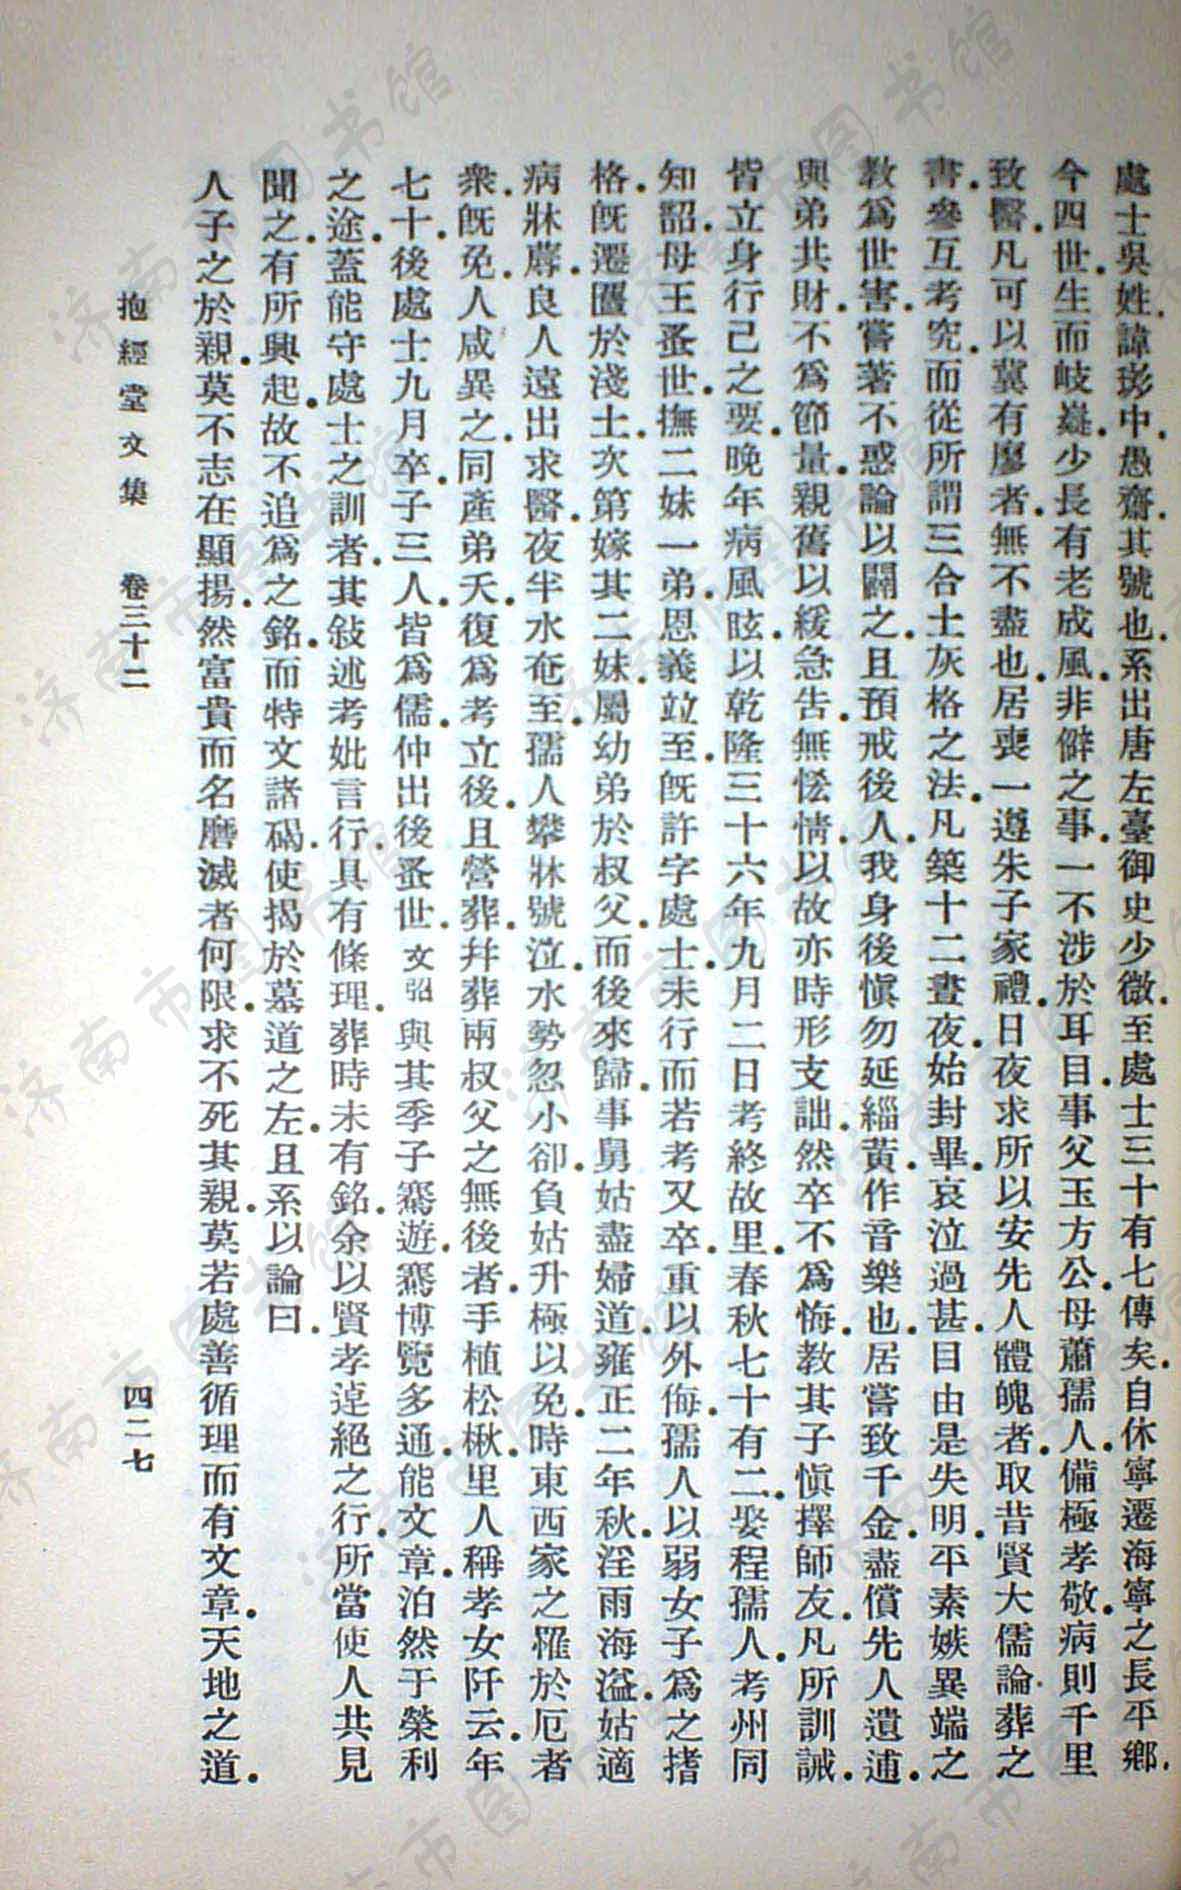 處士吳姓諱㻞中愚齋其號也系出唐左臺御史少微至處士三十有七傳矣自休寧遷海寧之長平鄉
今四世生而岐嶷少長有老成風非僻之事一不涉於耳目事父玉方公母蕭孺人備極孝敬病則千里
致醫凡可以冀有廖者無不盡也居喪一遵朱子家禮日夜求所以安先人體魄者取昔賢大儒論葬之
書參互考究而從所謂三合土灰格之法凡築十二晝夜始封畢哀泣過甚目由是失明平素嫉異端之
教為世害嘗著不惑論以闢之且預戒後人我身後慎勿延緇黃作音樂也居嘗致千金盡償先人遺逋
與弟共財不為節量親舊以緩急告無恡情以故亦時形支詘然卒不為悔教其子慎擇師友凡所訓誡
皆立身行己之要晚年病風眩以乾隆三十六年九月二日考終故里春秋七十有二娶程孺人考州同
知韶母王蚤世撫二妹一弟恩義竝至旣許字處士未行而若考又卒重以外侮孺人以弱女子為之揩
格旣遷匶於淺土次第嫁其二妹屬幼弟於叔父而後來歸事舅姑盡婦道雍正二年秋淫雨海溢姑適
病牀蓐良人遠出求醫夜半水奄至孺人攀牀號泣水勢忽小卻負姑升極以免時東西家之罹於厄者
衆旣免人咸異之同產弟夭復為考立後且營葬幷葬兩叔父之無後者手植松楸里人稱孝女阡云年
七十後處士九月卒子三人皆為儒仲出後蚤世文弨與其季子騫遊騫博覽多通能文章泊然于榮利
之途蓋能守處士之訓者其敍述考妣言行具有條理葬時未有銘余以賢孝逴絕之行所當使人共見
聞之有所興起故不追為之銘而特文諸碣使揭於墓道之左且系以論曰
人子之於親莫不志在顯揚然富貴而名磨滅者何限求不死其親莫若處善循理而有文章天地之道
抱經堂文集 卷三十二 四二七